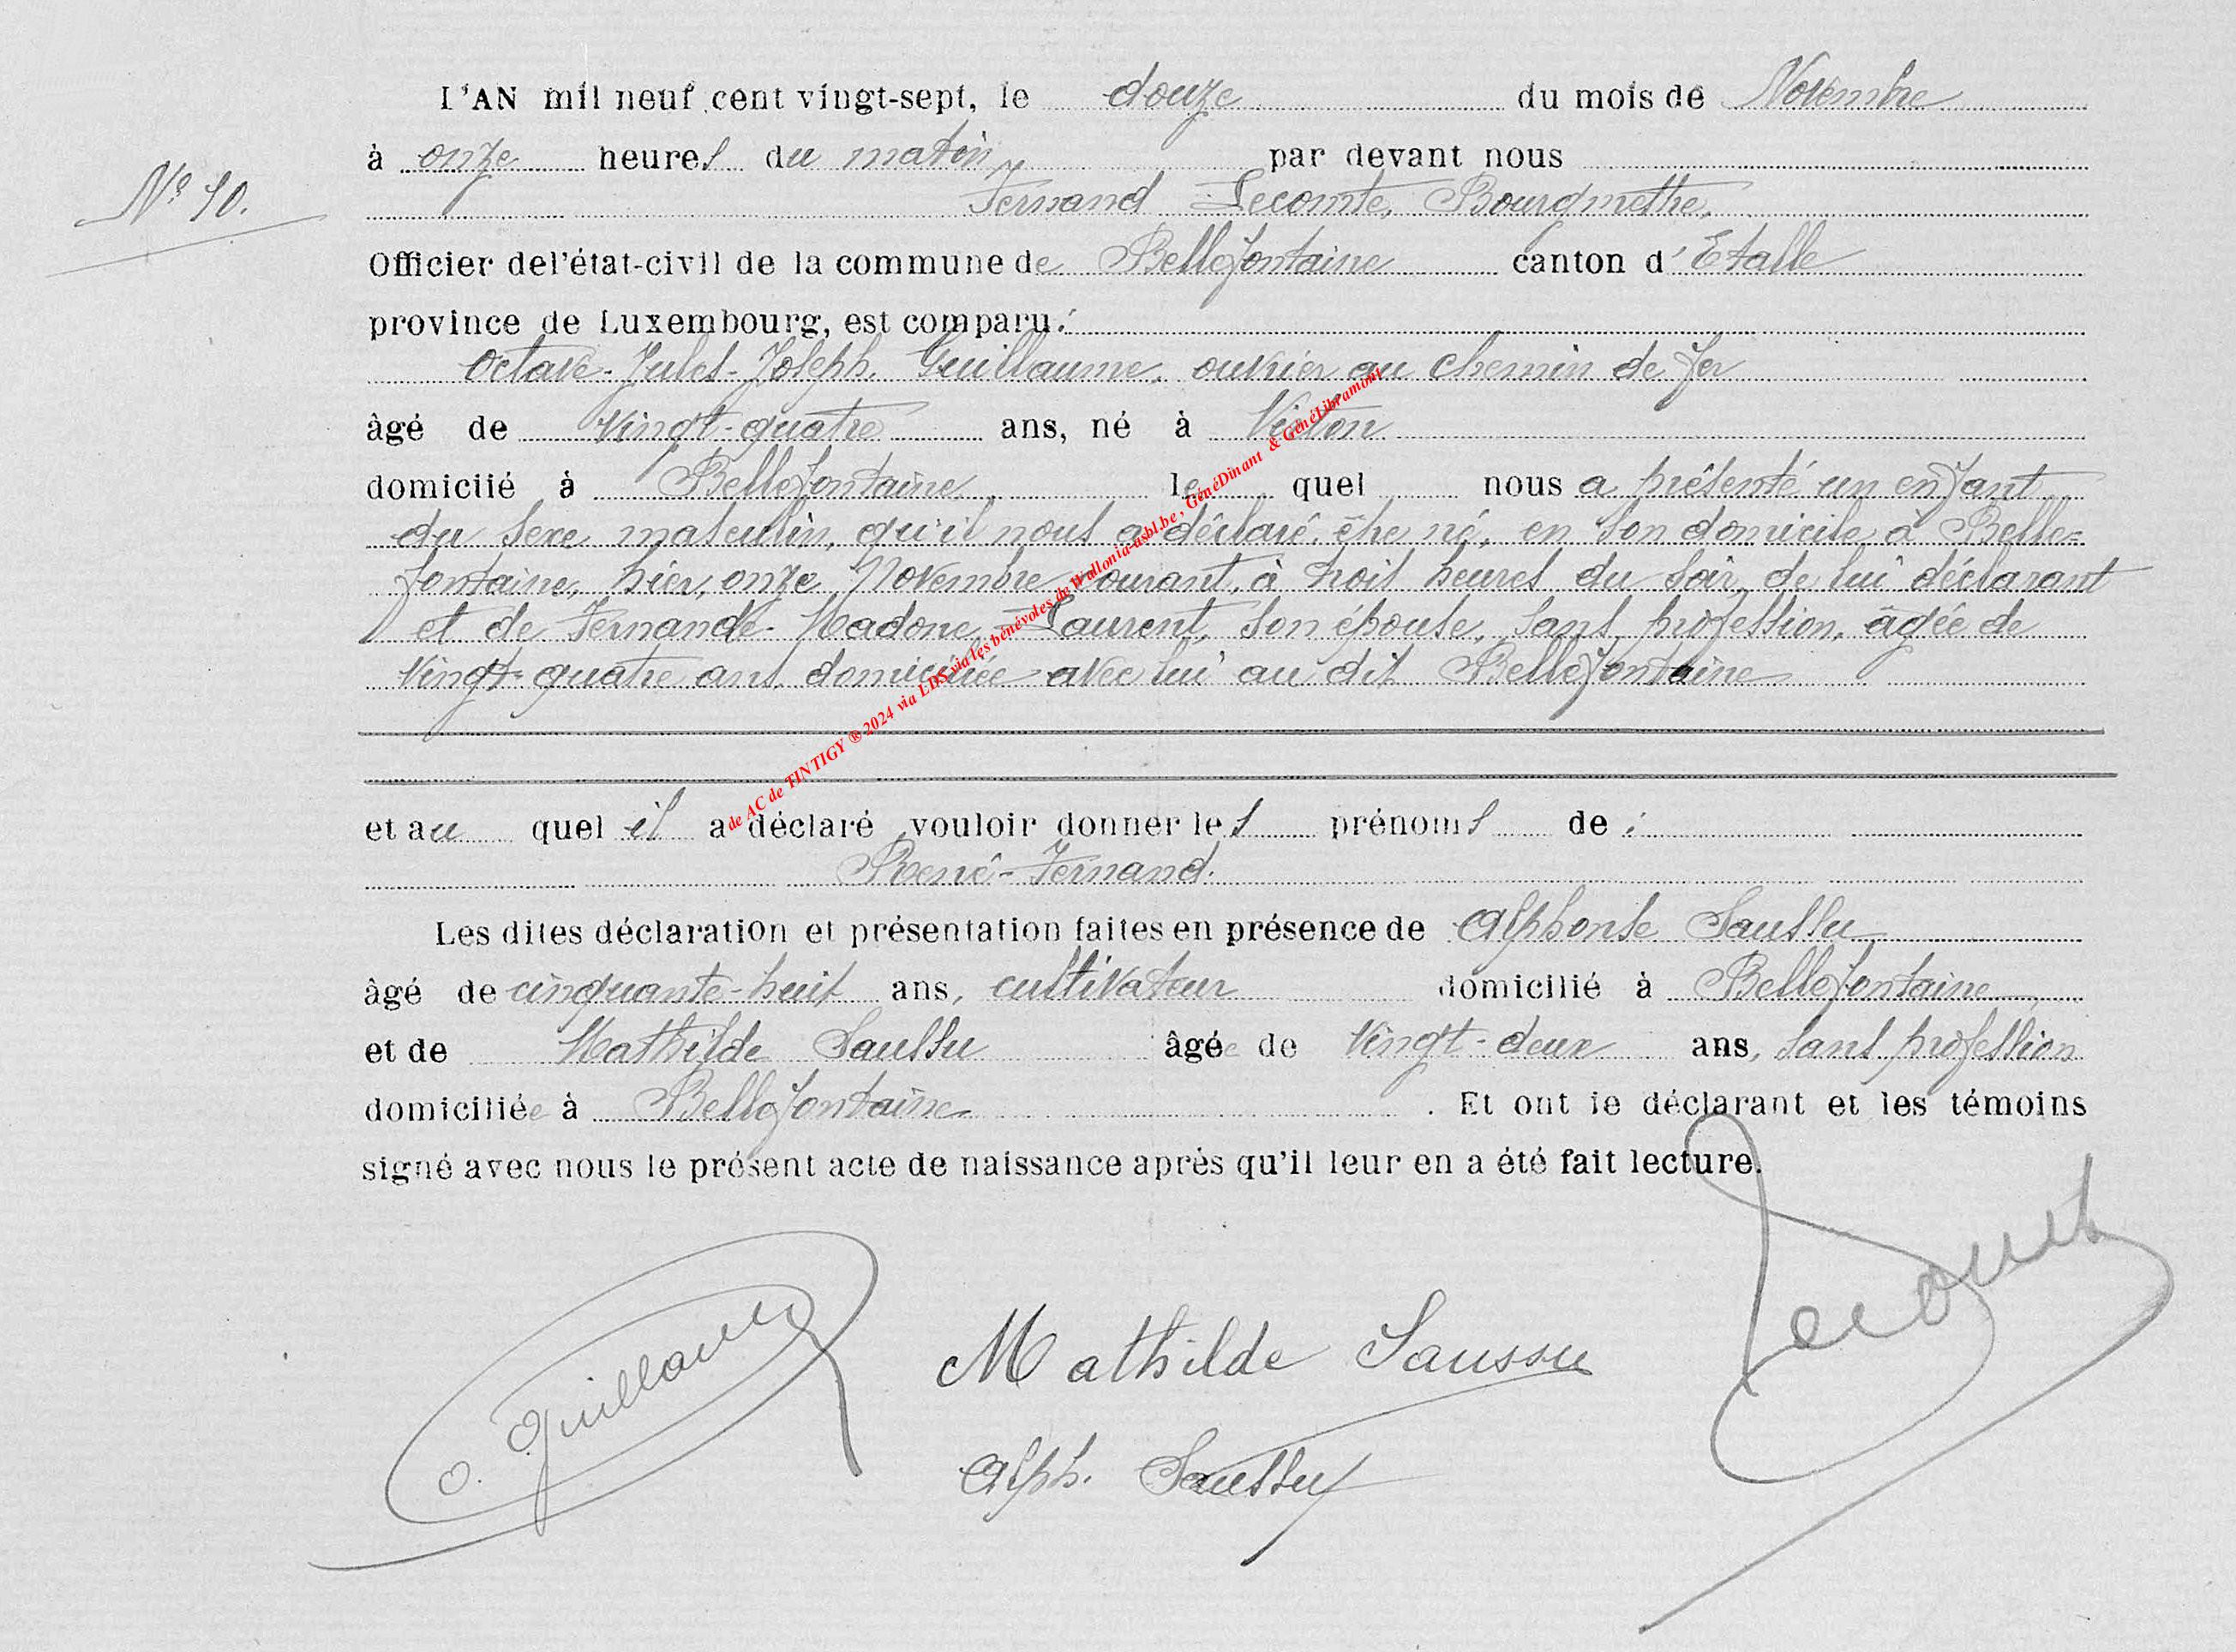 L'AN mil neuf cent vingt-sept, le douze du mois de Novembre
à onze heures du matin par devant nous
N° 10.
Fernand Lecomte, Bourgmettre,
Officier del'état-civil de la commune de Bellefontaine canton d'Etalle
province de Luxembourg, est comparu:
Octave-Jules-Joseph Guillaume, ouvrier au chemin de fer
âgé de vingt-quatre ans, né à Virton
domicilié à Bellefontaine, le quel nous a présenté un enfant
du sexe masculin, qu'il nous a déclaré être né, en son domicile à Belle=
fontaine, hier, onze Novembre courant, à trois heures du soir, de lui déclarant
et de Fernande-Madone Laurent, son épouse, sans profession, âgée de
vingt-quatre ans, domiciliée avec lui au dit Bellefontaine
et au quel il a déclaré vouloir donner les prénoms de :
René-Fernand.
Les dites déclaration et présentation faites en présence de Alphonse Saussu
âgé de cinquante-huit ans, cultivateur domicilié à Bellefontaine
et de Mathilde Saussu âgée de vingt-deux ans, sans profession
domiciliée à Bellefontaine. Et ont le déclarant et les témoins
signé avec nous le présent acte de naissance après qu'il leur en a été fait lecture.
O. Guillaume
Mathilde Saussu
Lecomte
Alph. Saussu
de AC de TINTIGY ® 2024 via LDS via les bénévoles de Wallonia-asbl.be, GénéDinant & GénéLibramont